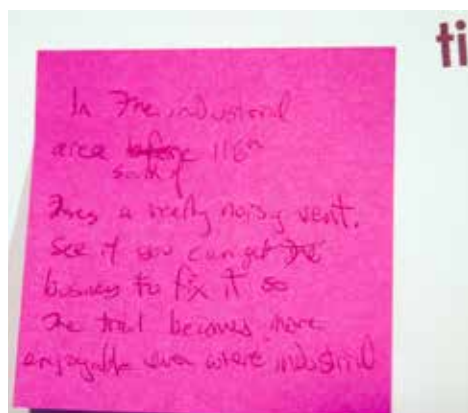 ti
In the industrial
area before 116th
south of
Theres a really noisy vent.
See if you can get the
business to fix it so
the trail becomes more
enjoyable even where industrial